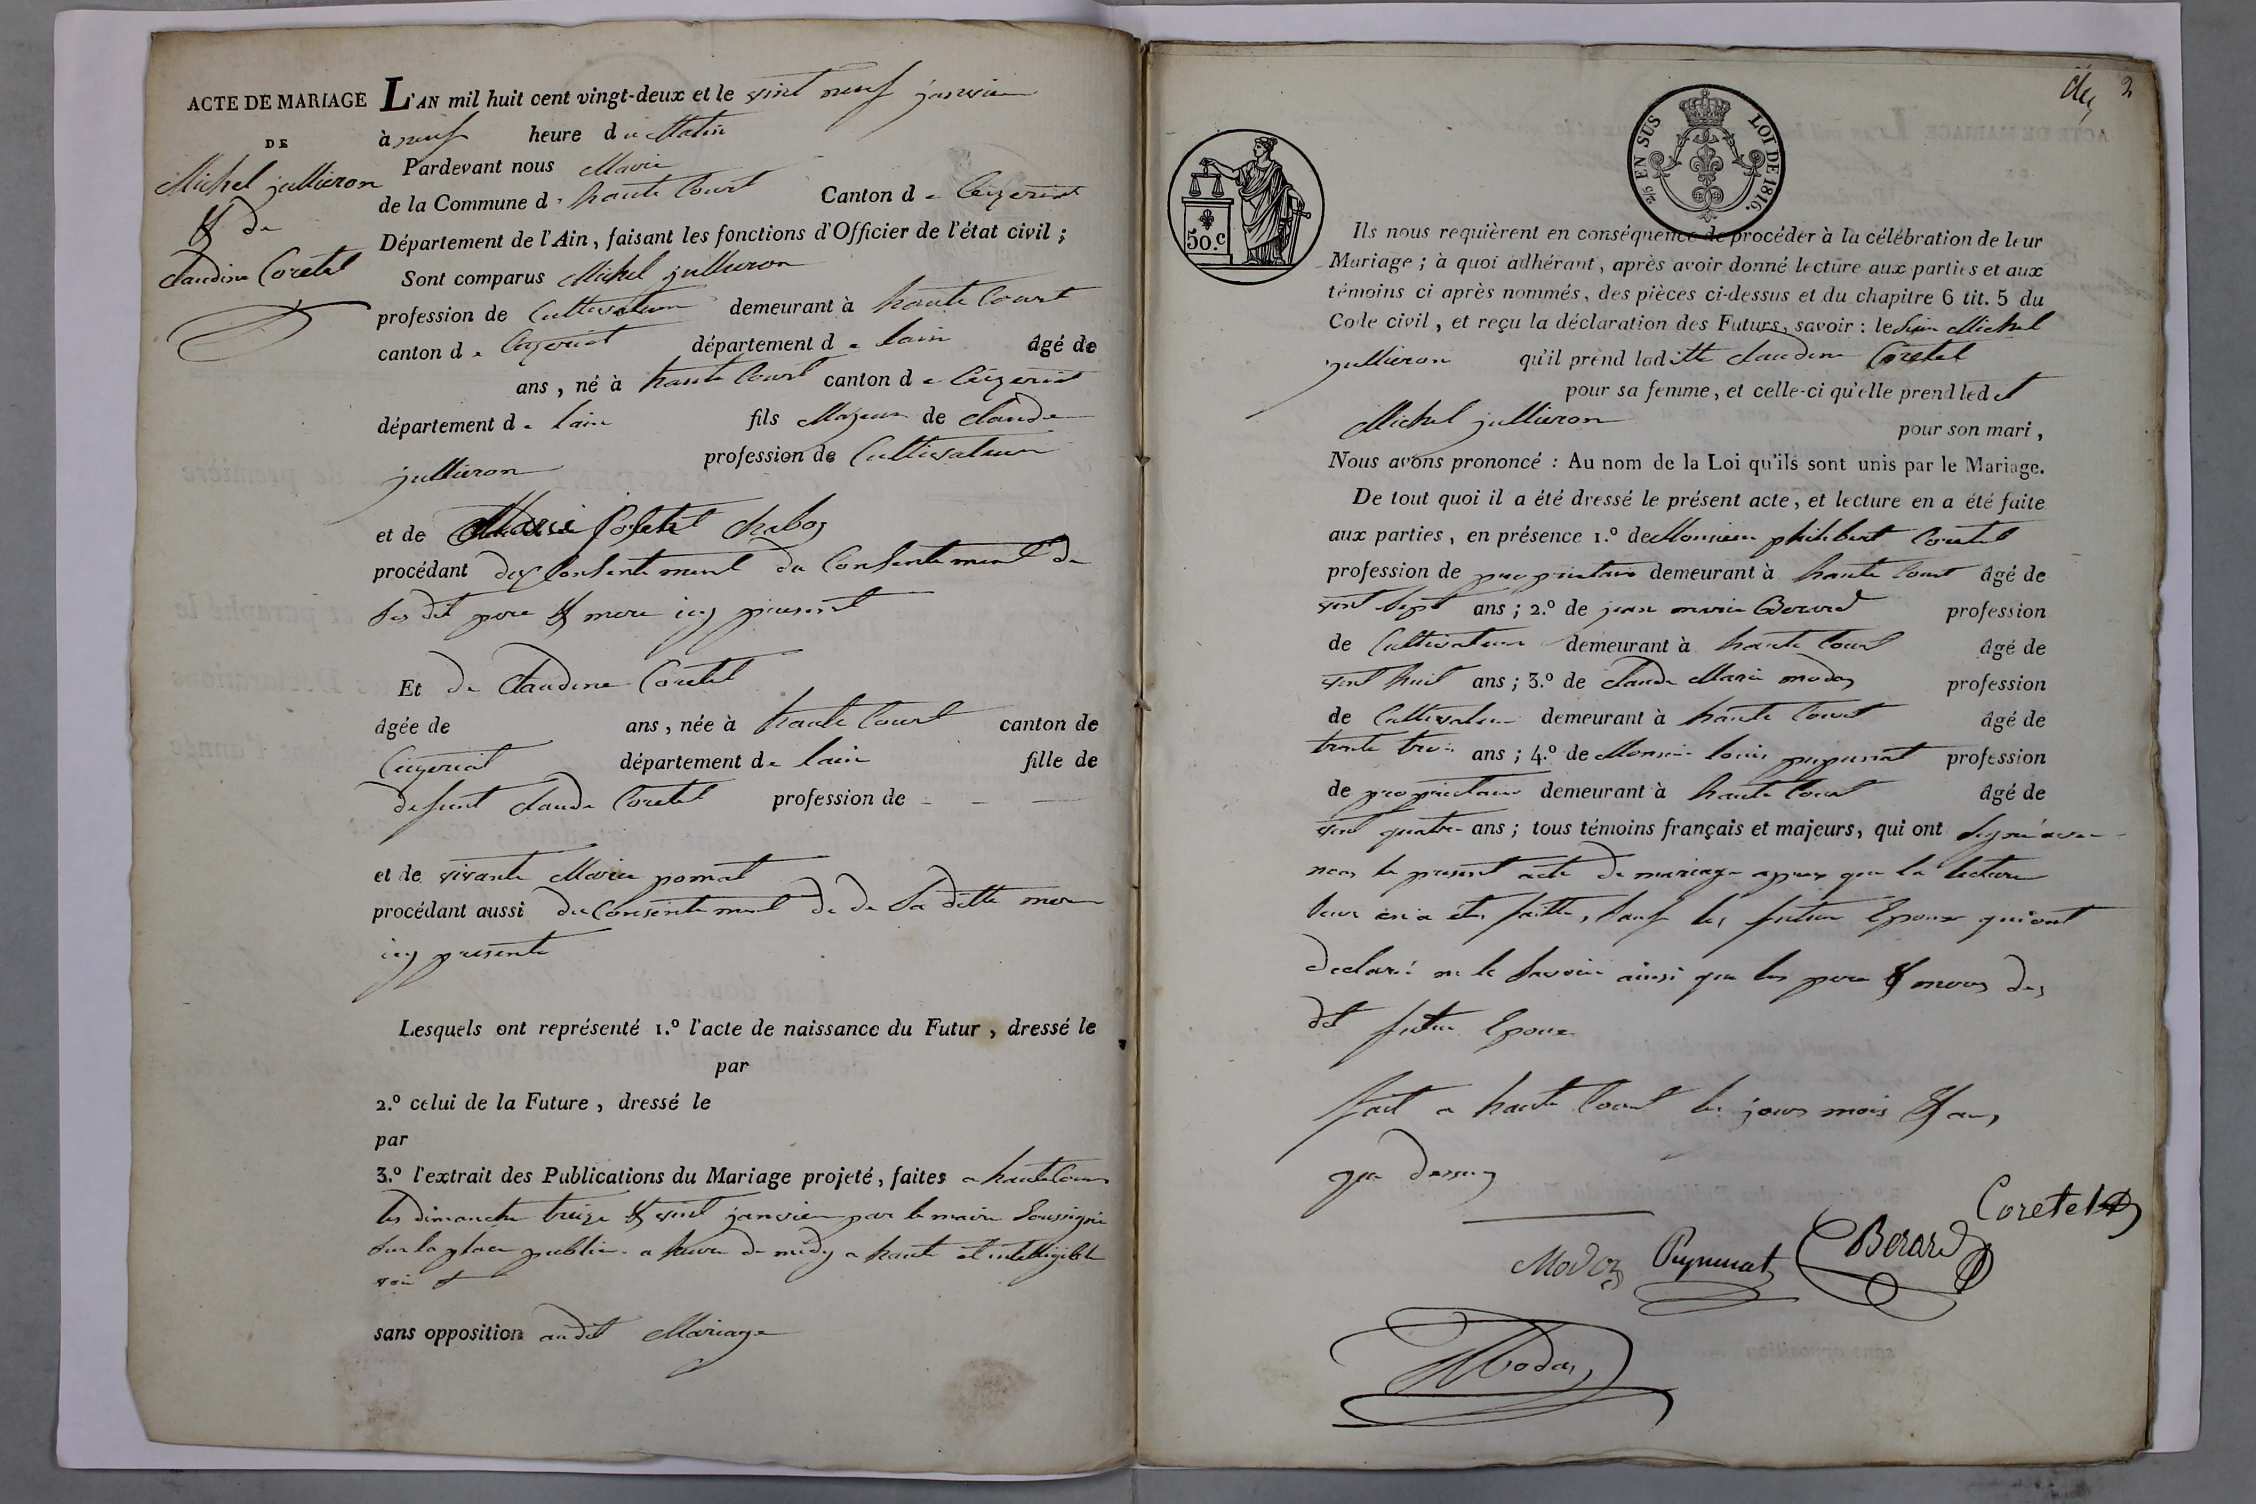 ACTE DE MARIAGE
DE
Michel jullieron
& de
Claudine Coretel
L'AN mil huit cent vingt-deux et le vint neuf janvier
à neuf heure du Matin
Pardevant nous Maire
de la Commune d haute Court Canton de Ceyzeriat
Département de l'Ain, faisant les fonctions d'Officier de l'état civil ;
Sont comparus Michel jullieron
profession de Cultivateur demeurant à haute Court
canton de Ceyzeriat département de lain âgé de
ans, né à haute Court canton de Ceyzeriat
département de lain fils Majeur de Claude
jullieron profession de Cultivateur
et de Marie Chaboz
procédant du Consentement de
Ses dit pere & mere icy present
Et de Claudine Coretel
âgée de ans, née à haute Court canton de
Ceyzeriat département de lain fille de
defunt Claude Coretel profession de - - -
et de vivante Marie pomat
procédant aussi du Consentement de de Sa ditte mere
icy presente
Lesquels ont représenté 1.º l'acte de naissance du Futur, dressé le
par
2.º celui de la Future, dressé le
par
3.º l'extrait des Publications du Mariage projeté, faites a haute Court
les dimanche treize & vint janvier par le maire Soussigné
Sur la place public a heure de midy a haute et intelligible
voix
sans opposition audit Mariage
2
50.C
2/5 EN SUS LOI DE 1816.
Ils nous requièrent en conséquence de procéder à la célébration de leur
Mariage ; à quoi adhérant, après avoir donné lecture aux parties et aux
témoins ci après nommés, des pièces ci-dessus et du chapitre 6 tit. 5 du
Code civil, et reçu la déclaration des Futurs, savoir : le Sieur Michel
jullieron qu'il prend laditte Claudine Coretel
pour sa femme, et celle-ci qu'elle prend ledet
Michel jullieron pour son mari,
Nous avons prononcé : Au nom de la Loi qu'ils sont unis par le Mariage.
De tout quoi il a été dressé le présent acte, et lecture en a été faite
aux parties, en présence 1.º de Monsieur philibert Coretel
profession de proprietaire demeurant à haute Court âgé de
vint Sept ans ; 2.º de jean marie Berard profession
de Cultivateur demeurant à haute Court âgé de
vint huit ans ; 3.º de Claude Marie modas profession
de Cultivateur demeurant à haute Court âgé de
trente trois ans ; 4.º de Monsieur louis puynniat profession
de proprietaire demeurant à haute Court âgé de
vint quatre ans ; tous témoins français et majeurs, qui ont Signé avec
nous le present acte de mariage apres que la lecture
leur en a été faitte, Sauf les futur Epoux qui ont
declaré ne le Savoir ainsi que les pere & meres des
dit futur Epoux
fait a haute Court les jours mois & ans
que dessus
Coretel
Modaz Berard
Modas